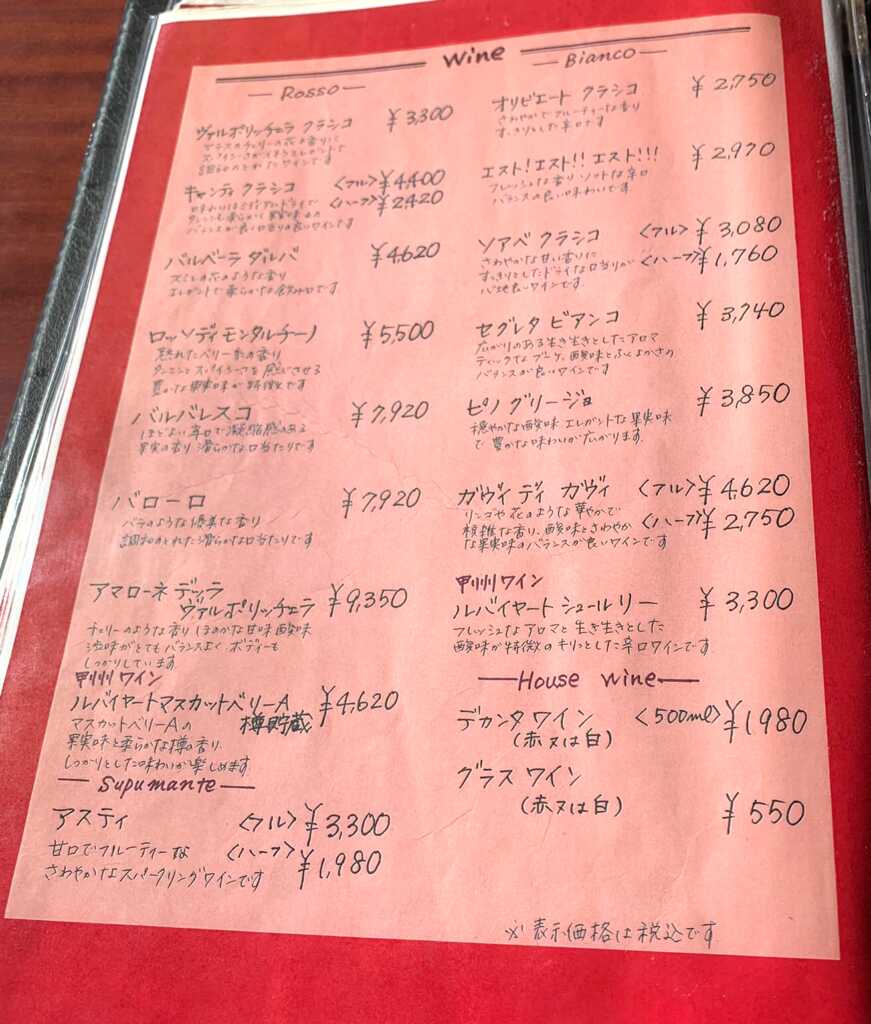 Wine
Rosso
ヴァルポリッチェラ クラシコ ¥3,300
調和のとれたワインです
キャンティ クラシコ <フル>¥4,400
<ハーフ>¥2,420
バランスが良い口香りの良いワインです
バルベーラ ダルバ ¥4,620
スミレの花のような香り
エレガントで柔らかな飲み口です
ロッソ ディ モンタルチーノ ¥5,500
熟れたベリー系の香り
タンニンとスパイシーさを感じさせる
豊かな果実味が特徴です
バルバレスコ ¥7,920
ほどよい辛口で凝縮感のある
果実の香り 滑らかな口当たりです
バローロ ¥7,920
バラのような優美な香り
調和のとれた滑らかな口当たりです
アマローネ デッラ
ヴァルポリッチェラ ¥9,350
チェリーのような香り ほのかな甘味 酸味
渋味がとてもバランスよく ボディーも
しっかりしています
甲州ワイン
ルバイヤートマスカットベリーA ¥4,620
マスカットベリーAの 樽貯蔵
果実味と柔らかな樽の香り、
しっかりとした味わいが楽しめます
Supumante
アスティ <フル>¥3,300
甘口でフルーティーな <ハーフ>¥1,980
さわやかなスパークリングワインです
Bianco
オリビエート クラシコ ¥2,750
さわやかでフルーティーな香り
すっきりとした辛口です
エスト!エスト!!エスト!!! ¥2,970
フレッシュな香り ソフトな辛口
バランスの良い味わいです
ソアベ クラシコ <フル>¥3,080
さわやかな甘い香りに <ハーフ>¥1,760
すっきりとしたドライな口当りが
心地良いワインです
セグレタ ビアンコ ¥3,740
広がりのある生き生きとしたアロマ
ティックなブーケ、酸味とふくよかさの
バランスが良いワインです
ピノ グリージョ ¥3,850
穏やかな酸味 エレガントな果実味
で豊かな味わいが広がります
ガヴィ ディ ガヴィ <フル>¥4,620
リンゴや花のような華やかで <ハーフ>¥2,750
複雑な香り、酸味とさわやか
な果実味のバランスが良いワインです
甲州ワイン
ルバイヤート シュール リー ¥3,300
フレッシュなアロマと生き生きとした
酸味が特徴のキリッとした辛口ワインです
House wine
デカンタ ワイン <500ml>¥1980
(赤又は白)
グラス ワイン
(赤又は白) ¥550
※表示価格は税込です